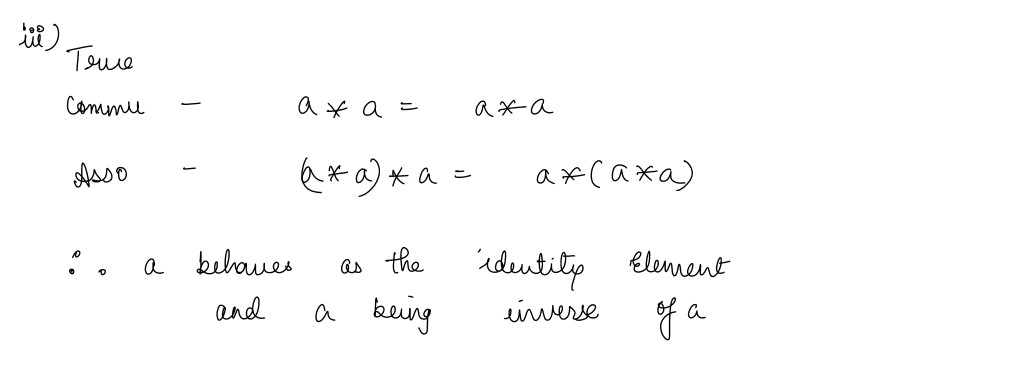 iii)
True
Commu - a * a = a * a
Asso - (a * a) * a = a * (a * a)
∴ a behaves as the identity Element
and a being inverse of a